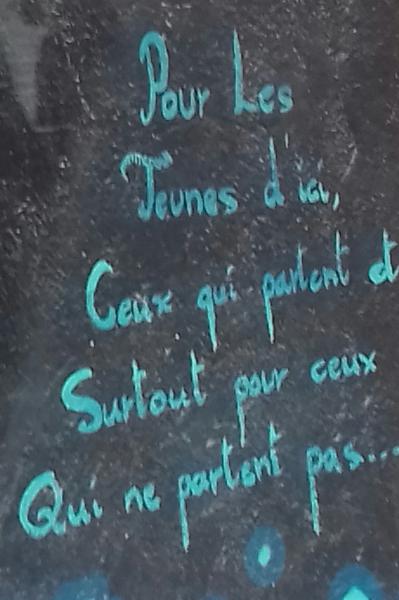 Pour Les
Jeunes d'ici,
Ceux qui partent et
Surtout pour ceux
Qui ne partent pas...